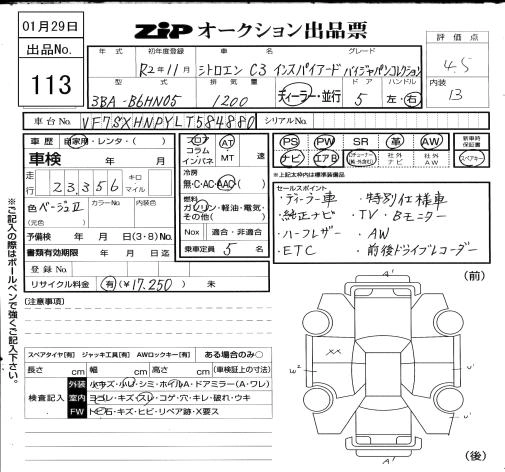 01月29日
出品No.
113
ZiP オークション出品票
評価点
4.5
内装
B
年式 初年度登録 車名 グレード
R2年11月 シトロエン C3 インスパイアード バイジャパンコレクション
型式 排気量 ドア ハンドル
3BA-B6HN05 1200 ディーラー・並行 5 左・右
車台No. VF7SXHNPYLT584880 シリアルNo.
車歴 自家用・レンタ・( )
車検 年 月
走行 23,356 キロ マイル
色 ベージュII カラーNo. 内装色
(元色 )
予備検 年 月 日(3・8)No.
書類有効期限 年 月 日迄
登録No.
リサイクル料金 有(¥17,250) 未
フロア コラム インパネ AT MT 速
冷房
無・C・AC・AAC( )
燃料
ガソリン・軽油・電気・
その他( )
Nox 適合・非適合
乗車定員 5 名
PS PW SR 革 AW
新車時保証書
ナビ エアB 社外ナビ 社外AW スペアキー
※上記太枠内は標準装備品
セールスポイント
・ディーラー車 ・特別仕様車
・純正ナビ ・TV・Bモニター
・ハーフレザー ・AW
・ETC ・前後ドライブレコーダー
(注意事項)
(前)
A'
××
E2
U'
A'
(後)
スペアタイヤ[有] ジャッキ工具[有] AWロックキー[有] ある場合のみ○
長さ cm 幅 cm 高さ cm (車検証上の寸法)
検査記入
外装 小キズ・小U・シミ・ホイルA・ドアミラー(A・ワレ)
室内 ヨゴレ・キズ・スレ・コゲ・穴・キレ・破れ・ウキ
FW トビ石・キズ・ヒビ・リペア跡・X要ス
※ご記入の際はボールペンで強くご記入下さい。